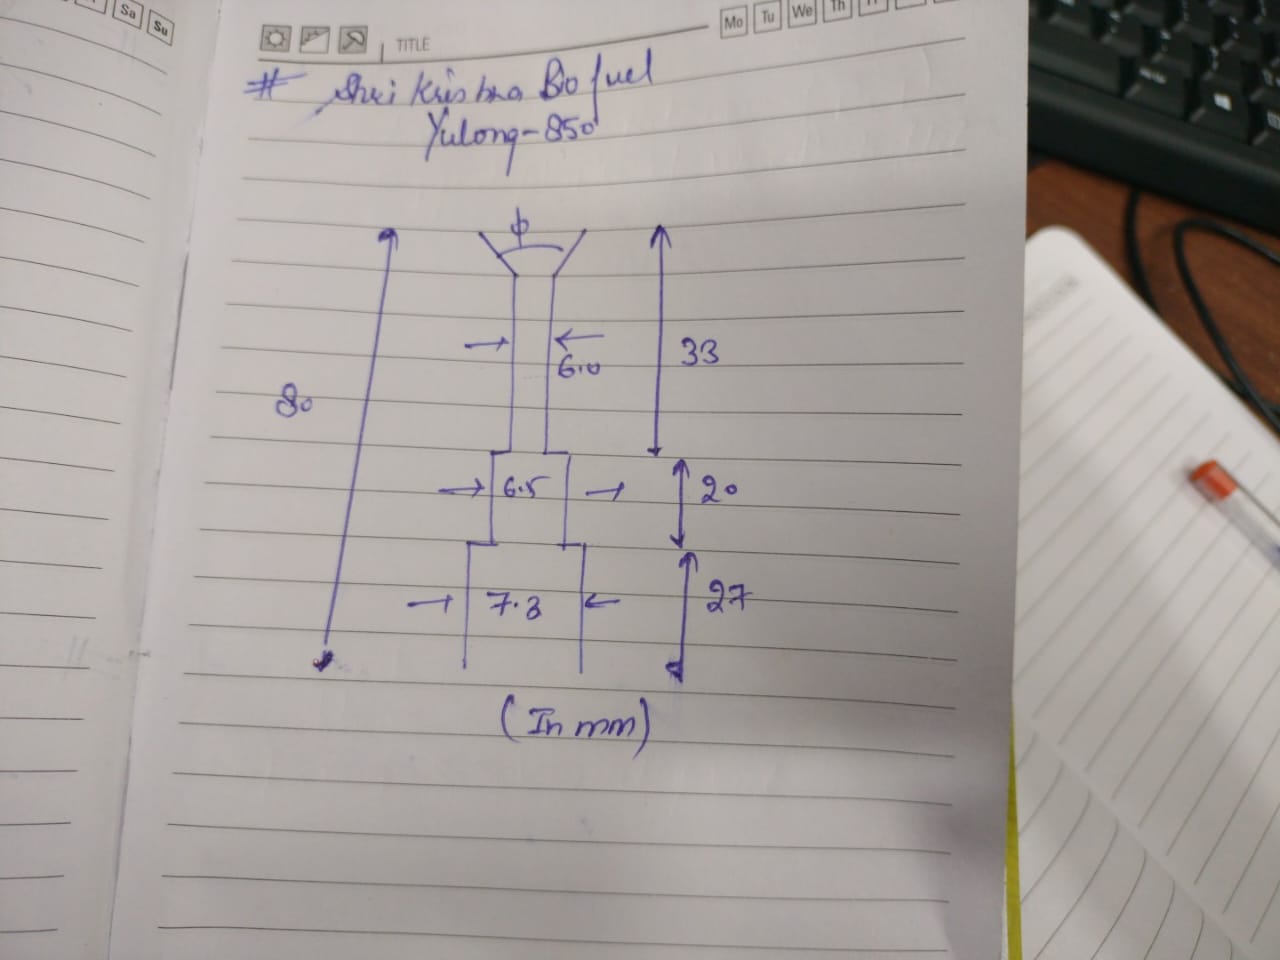 Sa Su
Mo Tu We Th
TITLE
# Shri Krishna Bio fuel
Yulong-850
ϕ
80
6.0
33
6.5
20
7.3
27
(In mm)